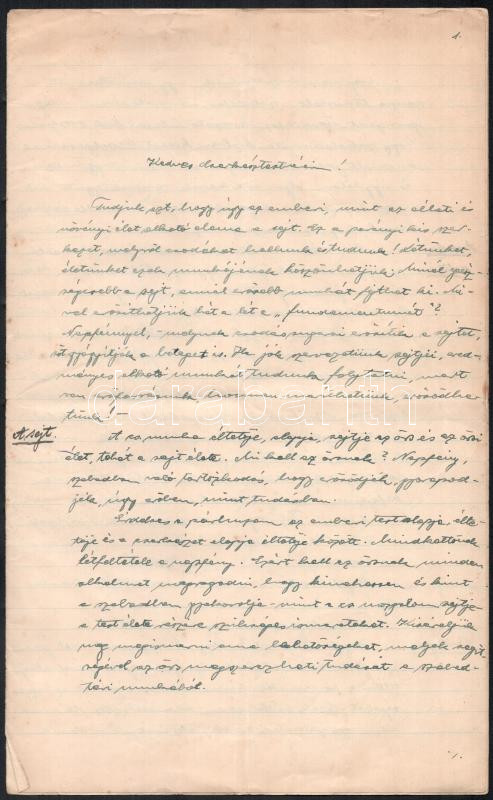 1.
Kedves cserkésztestvéreim!
Tudjuk azt, hogy úgy az emberi, mint az állati és
növényi élet alkotó eleme a sejt. Ez a parányi kis szer-
kezet, melyről csodákat hallunk és tudunk! Létünket,
életünket ezek munkájának köszönhetjük. Minél egész-
ségesebb a sejt, annál erősebb munkát fejthet ki. Mi-
vel erősíthetjük hát a lét a „fundamentumát"?
Napfénnyel, - melynek csodás sugarai erősítik a sejtet,
gyógyítják a beteget is. Ha jók szervezetünk sejtjei, ered-
ményes alkotó munkát tudunk folytatni, mert
van
tunk! -
A sejt.
A cs. munka éltetője, alapja, sejtje az őrs és az őrsi
élet, tehát a sejt élete. Mi kell az őrsnek? Napfény,
szabadban való tartózkodás, hogy erősödjék, gyarapod-
jék, úgy erőben, mint tudásban.
Érdekes a párhuzam az emberi test alapja, élte-
tője és a cserkészet alapja éltetője között. Mindkettőnek
létfeltétele a napfény. Ezért kell az őrsnek minden
alkalmat megragadni, hogy kimehessen és kint
a szabadban gyakorolja - mint a cs mozgalom sejtje
a test élete részére szükséges ismereteket. Kíséreljük
meg megismerni ama lehetőségeket, melyek segít-
ségével az őrs megszerezheti tudását a szabad-
téri munkából.
./.
darabanth